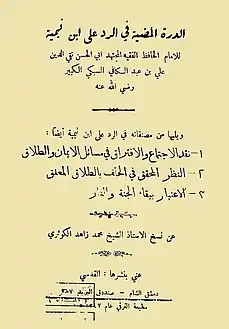 الدرة المضية في الرد على ابن تيمية
للامام الحافظ الفقيه المجتهد ابي الحسن تقي الدين
علي بن عبد الكافي السبكي الكبير
رضي الله عنه
ويليها من مصنفاته في الرد على ابن تيمية أيضاً:
١ - نقد الاجتماع والافتراق في مسائل الايمان والطلاق
٢ - النظر المحقق في الحلف بالطلاق المعلق
٣ - الاعتبار ببقاء الجنة والنار
عن نسخ الاستاذ الشيخ محمد زاهد الكوثري
عني بنشرها: القدسي
دمشق الشام - صندوق البريد
مطبعة الترقي عام